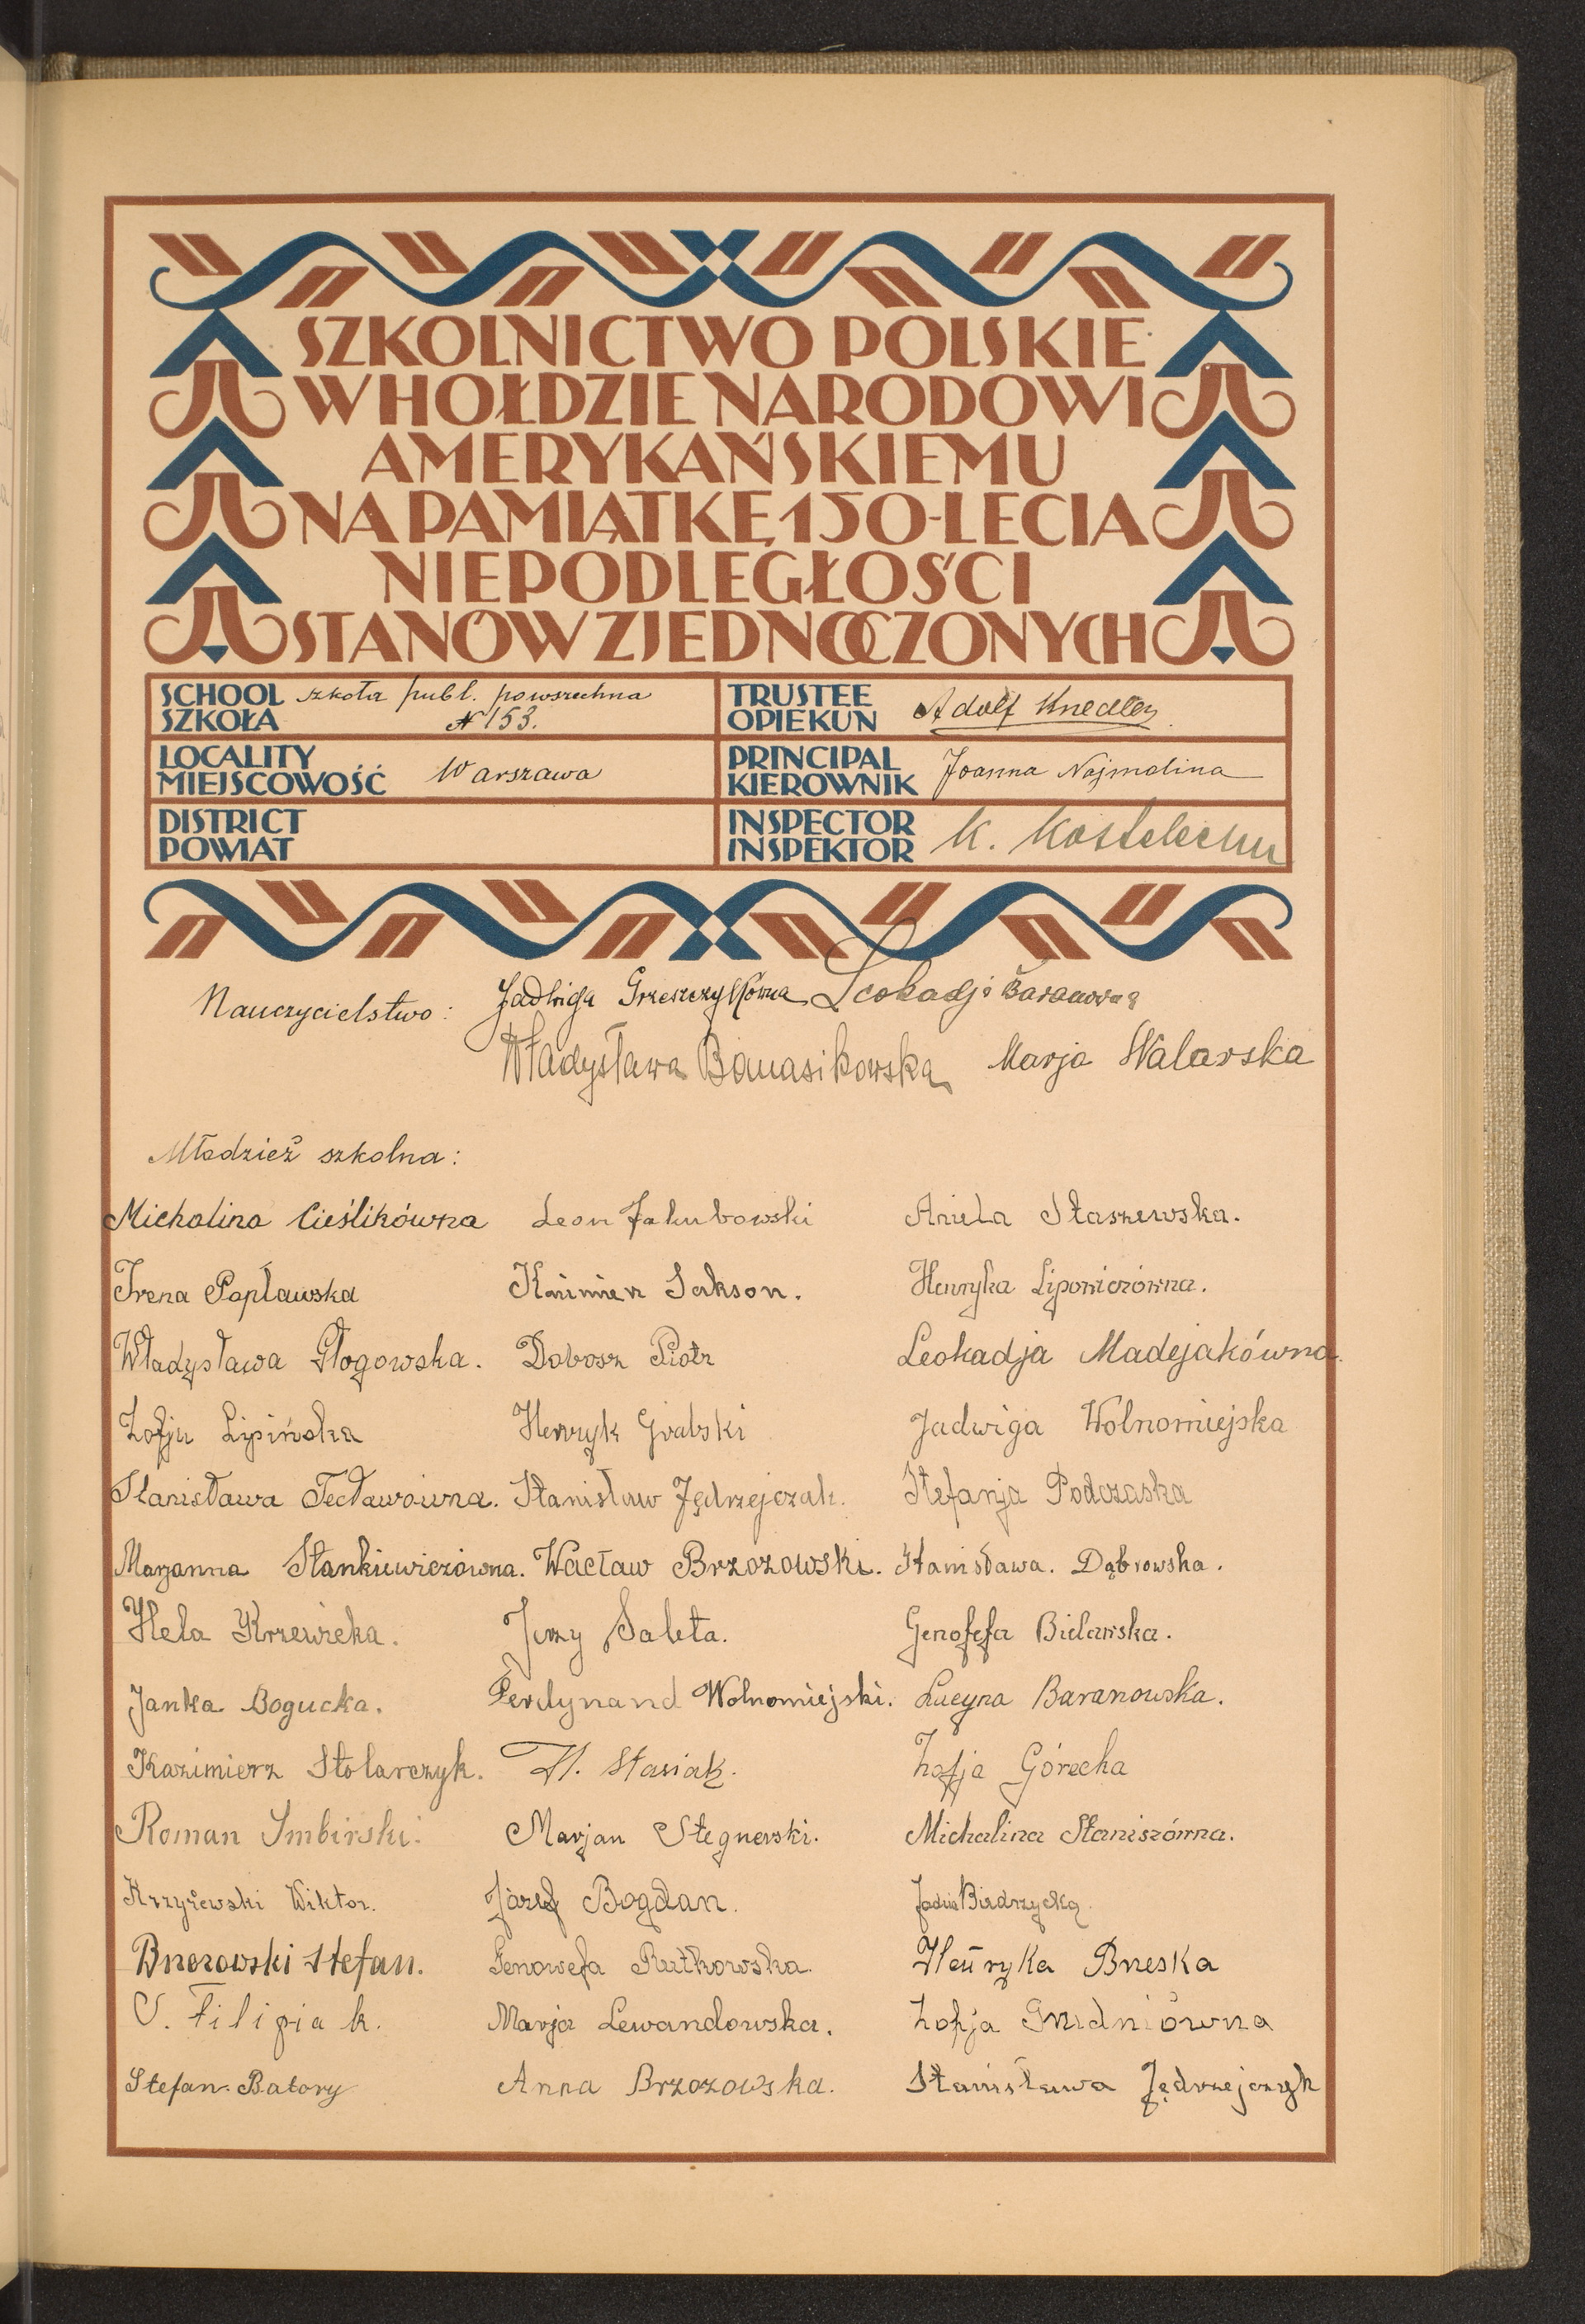 SZKOLNICTWO POLSKIE
W HOŁDZIE NARODOWI
AMERYKAŃSKIEMU
NA PAMIĄTKĘ 150-LECIA
NIEPODLEGŁOŚCI
STANÓW ZJEDNOCZONYCH
SCHOOL szkoła publ. powszechna
SZKOŁA № 153.
TRUSTEE
OPIEKUN Adolf Knedler
LOCALITY
MIEJSCOWOŚĆ Warszawa
PRINCIPAL
KIEROWNIK Joanna Najmolina
DISTRICT
POWIAT
INSPECTOR
INSPEKTOR K.
Nauczycielstwo: Jadwiga Leokadja Baranowska
Władysława Banasikowska Marja Walarska
Młodzież szkolna:
Michalina Cieślikówna Leon Jakubowski Aniela Staszewska.
Irena Popławska Kazimierz Sakson. Henryka Lipowiczówna.
Władysława Głogowska. Dobosz Piotr Leokadja Madejakówna.
Zofja Lipińska Henryk Grabski Jadwiga Wolnomiejska
Stanisława Tecławówna. Stanisław Jędrzejczak. Stefanja Podczaska
Marjanna Stankiewiczówna. Wacław Brzozowski. Stanisława. Dąbrowska.
Hela Krzewicka. Jerzy Saleta. Genofefa Bielarska.
Janka Bogucka. Ferdynand Wolnomiejski. Lucyna Baranowska.
Kazimierz Stolarczyk. St. Stasiak. Zofja Górecka
Roman Imbirski. Marjan Stegnerski. Michalina Staniszówna.
Krzyżewski Wiktor. Józef Bogdan. Jadzia Biedrzycka.
Brzozowski Stefan. Genowefa Rutkowska. Henryka Brzeska
S. Filipiak. Marja Lewandowska. Zofja
Stefan. Batory Anna Brzozowska. Stanisława Jędrzejczyk